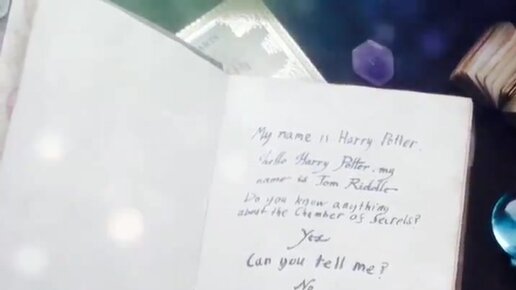 My name is Harry Potter.
Hello Harry Potter. my
name is Tom Riddle
Do you know anything
about the Chamber of Secrets?
Yes
Can you tell me?
No